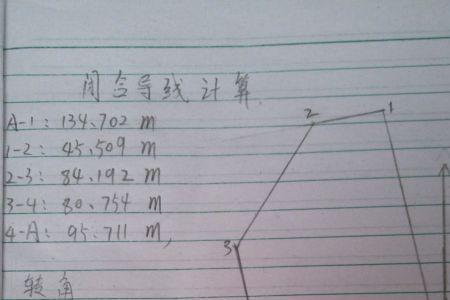 闭合导线计算
A-1: 134.702 m
1-2: 45.509 m
2-3: 84.192 m
3-4: 80.754 m
4-A: 95.711 m,
转角
2
1
3